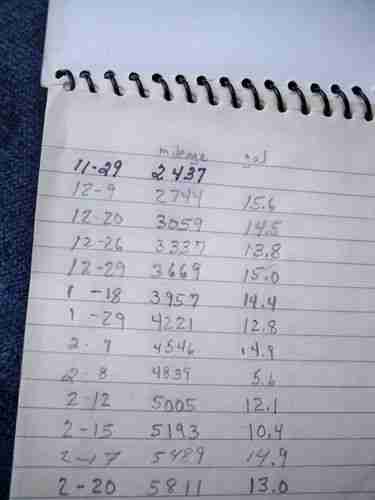 mileage gal
11-29 2437
12-9 2744 15.6
12-20 3059 14.5
12-26 3337 13.8
12-29 3669 15.0
1-18 3957 14.4
1-29 4221 12.8
2-7 4546 14.9
2-8 4839 5.6
2-12 5005 12.1
2-15 5193 10.4
2-17 5489 14.9
2-20 5811 13.0